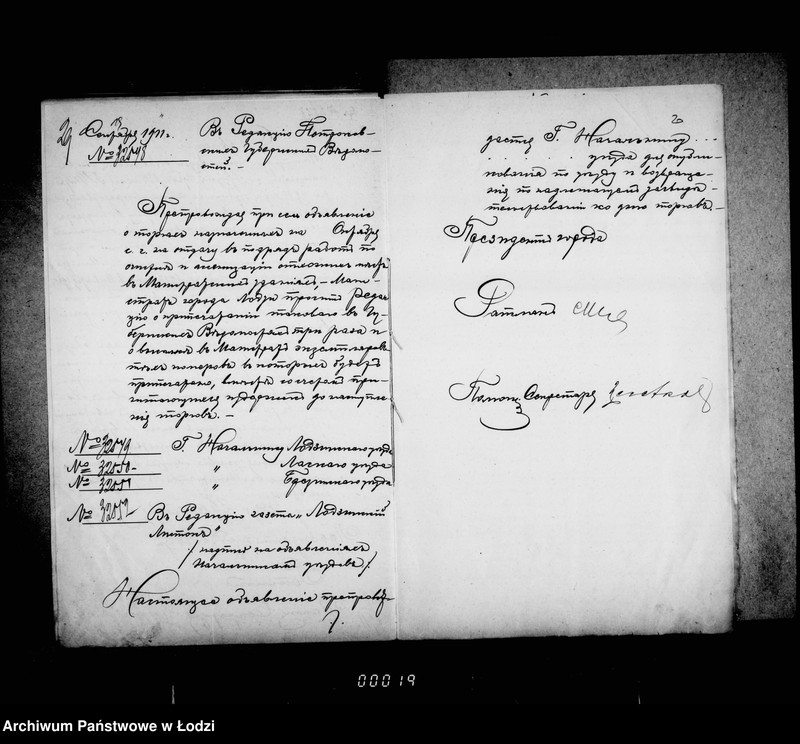 29 Сентября 1911 г.
№ 32048
Въ Редакцію Петроков-
скихъ Губернскихъ Вѣдомо-
стей. –
Препровождая при семъ объявленіе
о торгахъ назначенныхъ на Октября
с. г. на отдачу въ подрядъ работъ по
очисткѣ и ассенизаціи отхожихъ мѣстъ
въ Магистратскихъ зданіяхъ, – Маги-
стратъ города Лодзи проситъ Редак-
цію о припечатаніи таковаго въ Гу-
бернскихъ Вѣдомостяхъ три раза и
о высылкѣ въ Магистратъ экземпляровъ
тѣхъ номеровъ въ которыхъ будетъ
припечатано, вмѣстѣ со счетомъ при-
читающихся издержекъ до наступле-
нія торговъ. –
№ 32049 Г. Начальнику Лодзинскаго уѣзда
№ 32050 " Ласкаго уѣзда
№ 32051 " Брезинскаго уѣзда
№ 32052 Въ Редакцію газеты „Лодзинскій
Листокъ"
/ надпись на объявленіяхъ
Начальникамъ уѣздовъ /
Настоящее объявленіе препровож-
20
дается Г. Начальнику . . .
. . . . . . . уѣзда для опубли-
кованія по уѣзду и возвраще-
нія по надлежащемъ засвидѣ-
тельствованіи ко дню торговъ. –
Президентъ города
Ратманъ
Помощ. Секретаря
00019
Archiwum Państwowe w Łodzi